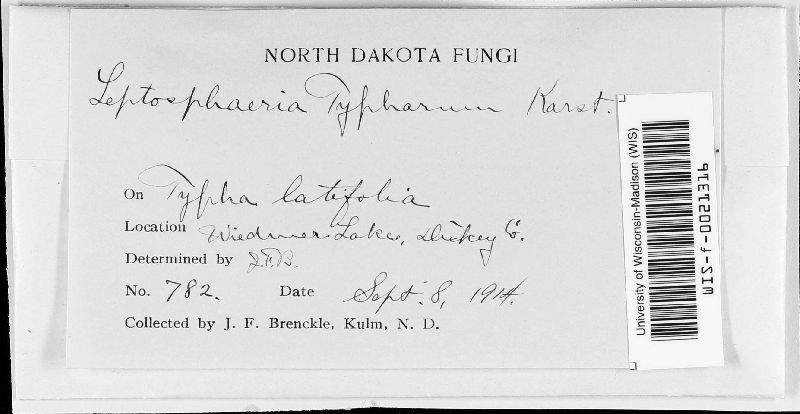 NORTH DAKOTA FUNGI
Leptosphaeria Typharum Karst.
On Typha latifolia
Location Wiedmer Lake, Dickey Co.
Determined by J.F.B.
No. 782. Date Sept. 8, 1914.
Collected by J. F. Brenckle, Kulm, N. D.
University of Wisconsin-Madison (WIS)
WIS-f-0021316